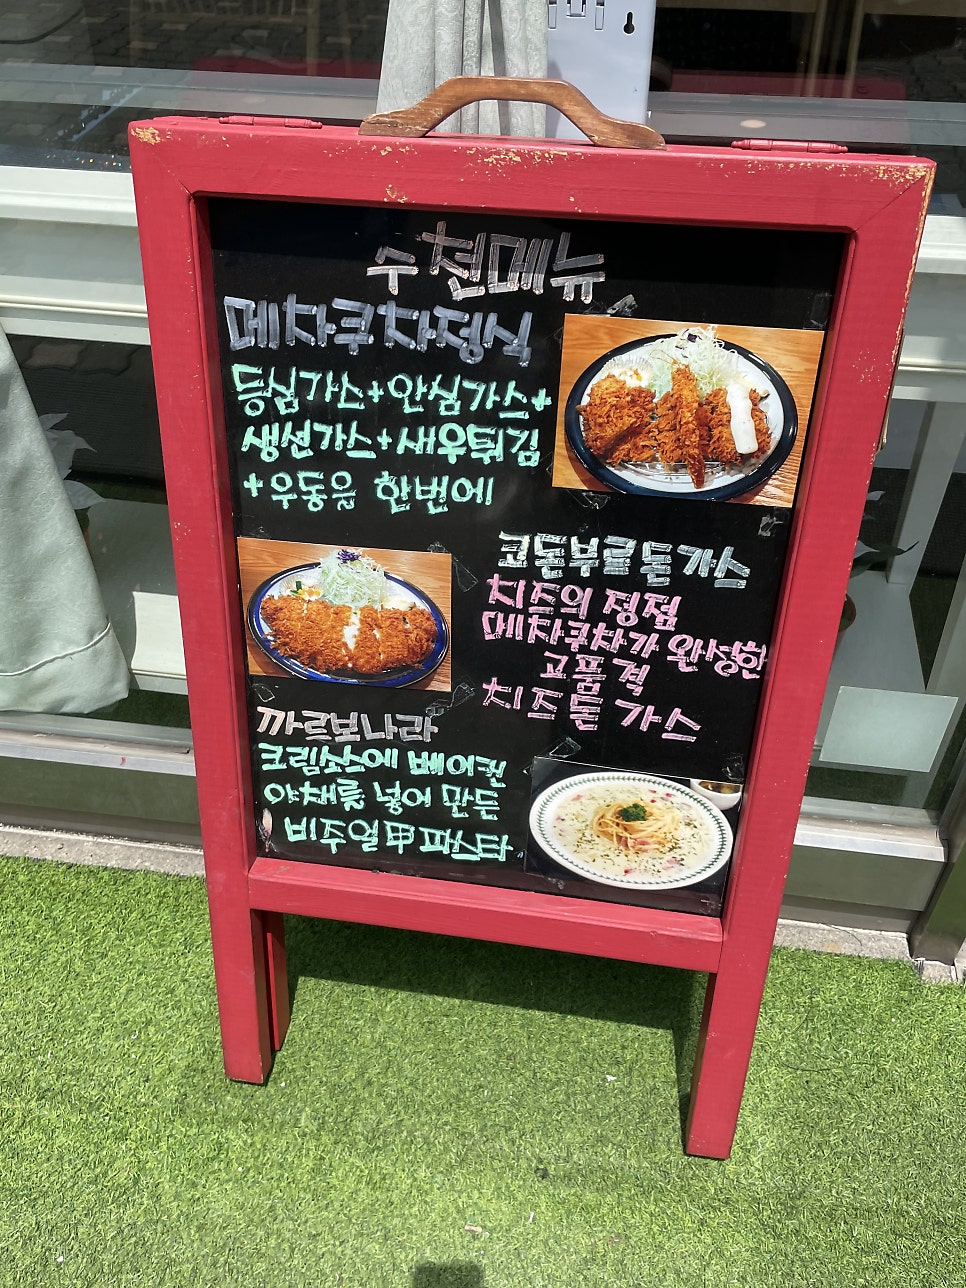 수천메뉴
메차쿠차정식
등심가스+안심가스+
생선가스+새우튀김
+우동을 한번에
코돈부르돈가스
치즈의 정점
메차쿠차가 완성한
고품격
치즈돈 가스
까르보나라
크림소스에 베이컨
야채를 넣어 만든
비주얼甲파스타